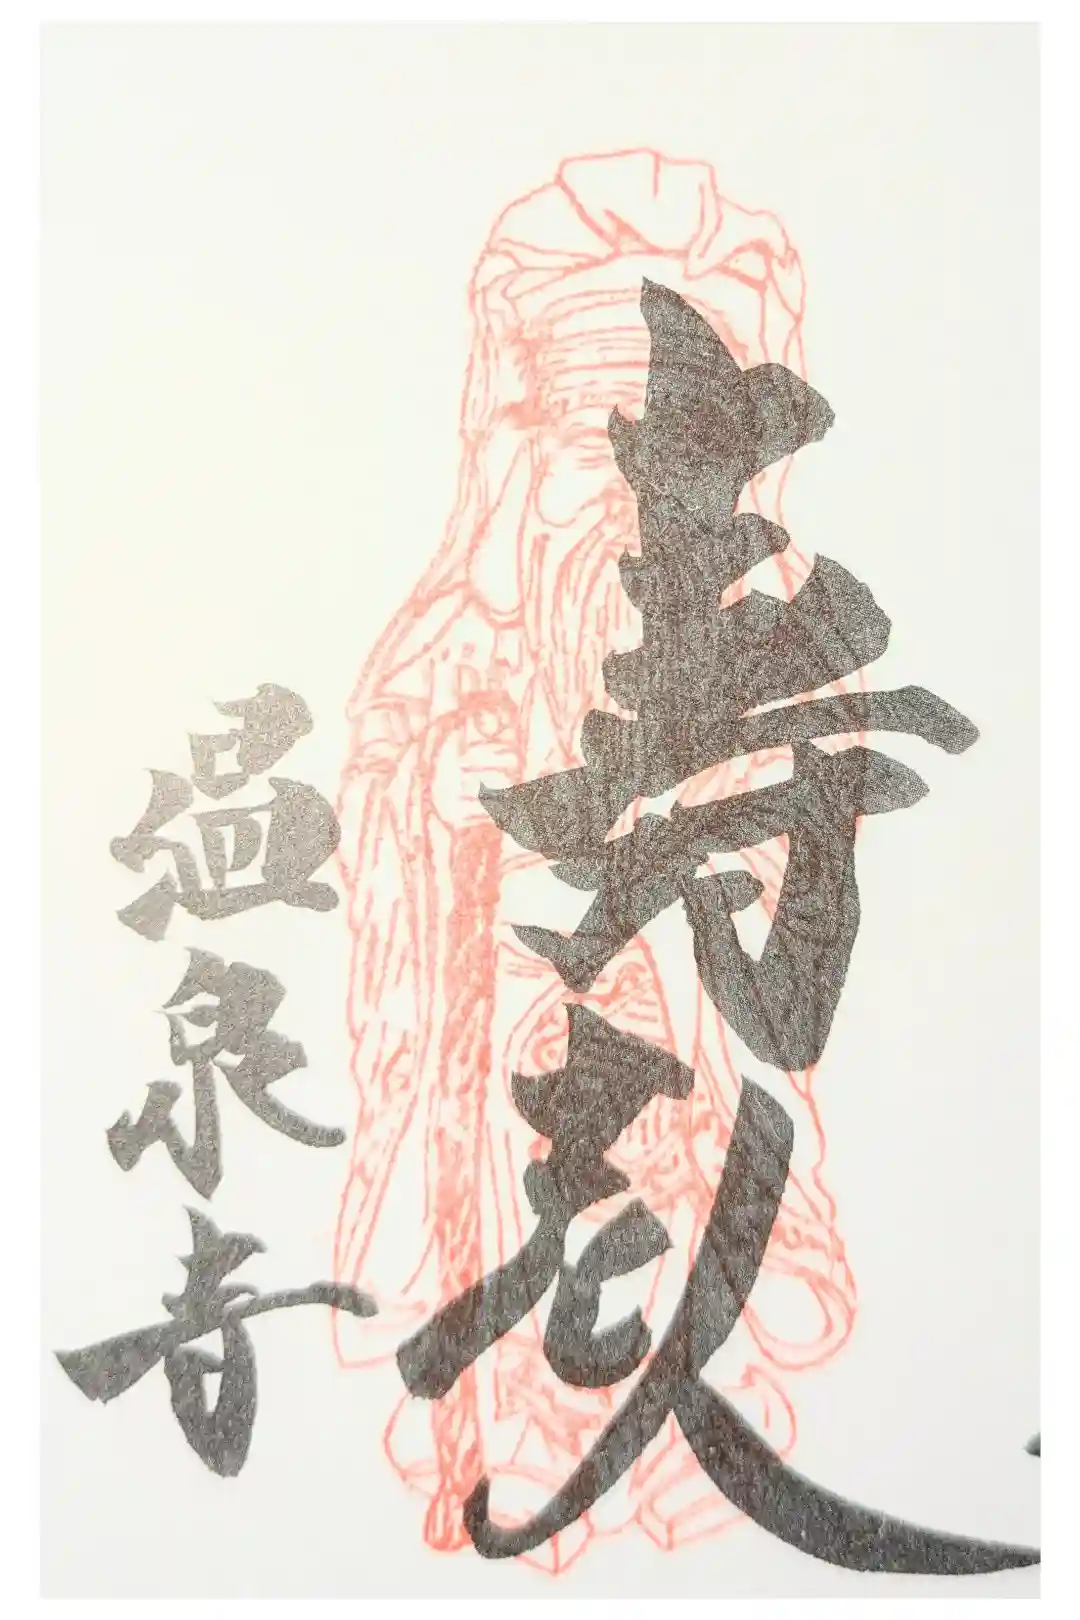 寿老人
温泉寺